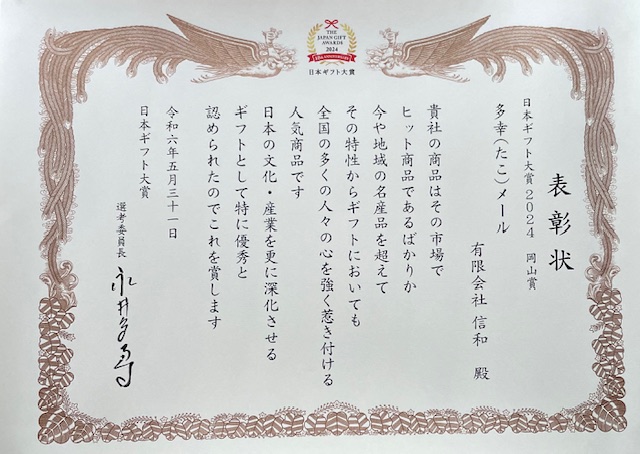 THE
JAPAN GIFT
AWARDS
2024
10th ANNIVERSARY
日本ギフト大賞
表彰状
日本ギフト大賞2024 岡山賞
多幸(たこ)メール
有限会社 信和 殿
貴社の商品はその市場で
ヒット商品であるばかりか
今や地域の名産品を超えて
その特性からギフトにおいても
全国の多くの人々の心を強く惹き付ける
人気商品です
日本の文化・産業を更に深化させる
ギフトとして特に優秀と
認められたのでこれを賞します
令和六年五月三十一日
日本ギフト大賞
選考委員長